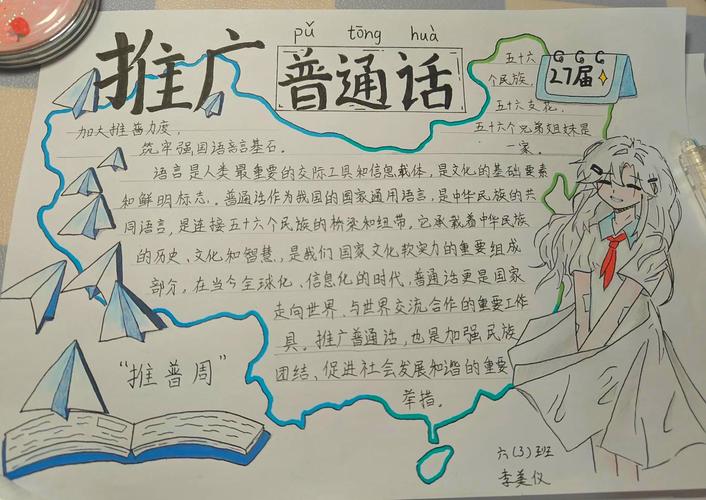 pǔ tōng huà
推广普通话
27届
五十六
个民族，
五十六支花，
五十六个兄弟姐妹是
一家。
加大推普力度，
筑牢强国语言基石。
语言是人类最重要的交际工具和信息载体，是文化的基础要素
和鲜明标志。普通话作为我国的国家通用语言，是中华民族的共
同语言，是连接五十六个民族的桥梁和纽带。它承载着中华民族
的历史、文化和智慧，是我们国家文化软实力的重要组成
部分。在当今全球化、信息化的时代，普通话更是国家
走向世界、与世界交流合作的重要工作
具。推广普通话，也是加强民族
团结、促进社会发展和谐的重要
举措。
“推普周”
六（3）班
李美仪